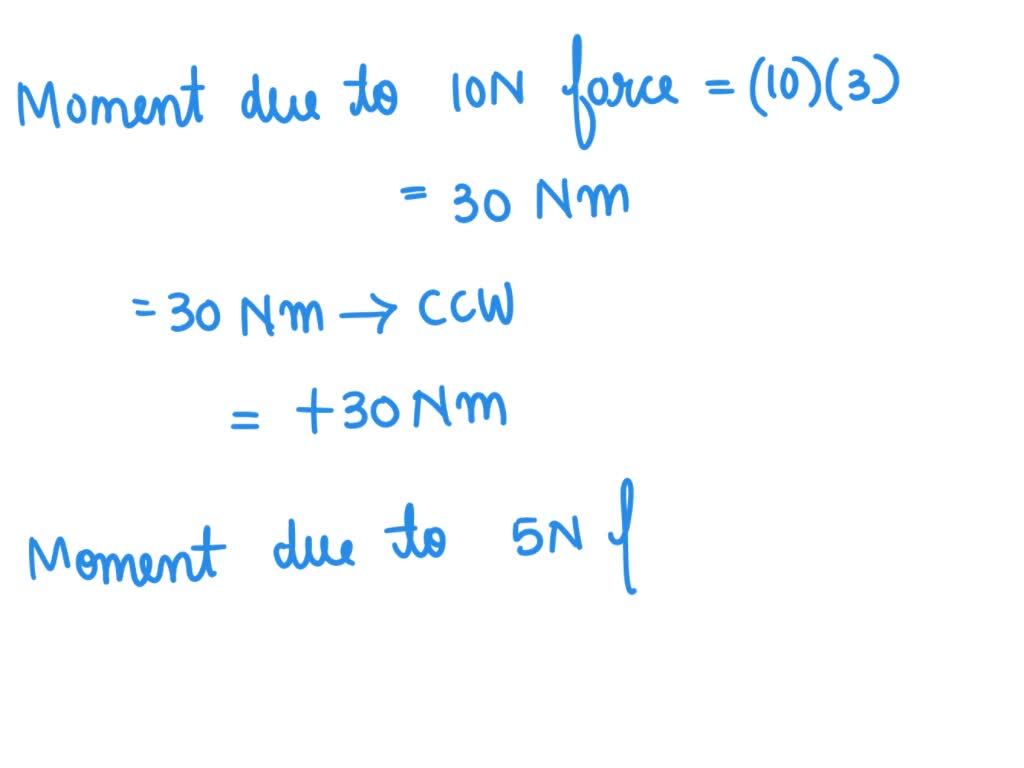 Moment due to 10N force = (10)(3)
= 30 Nm
= 30 Nm → CCW
= +30 Nm
Moment due to 5N f